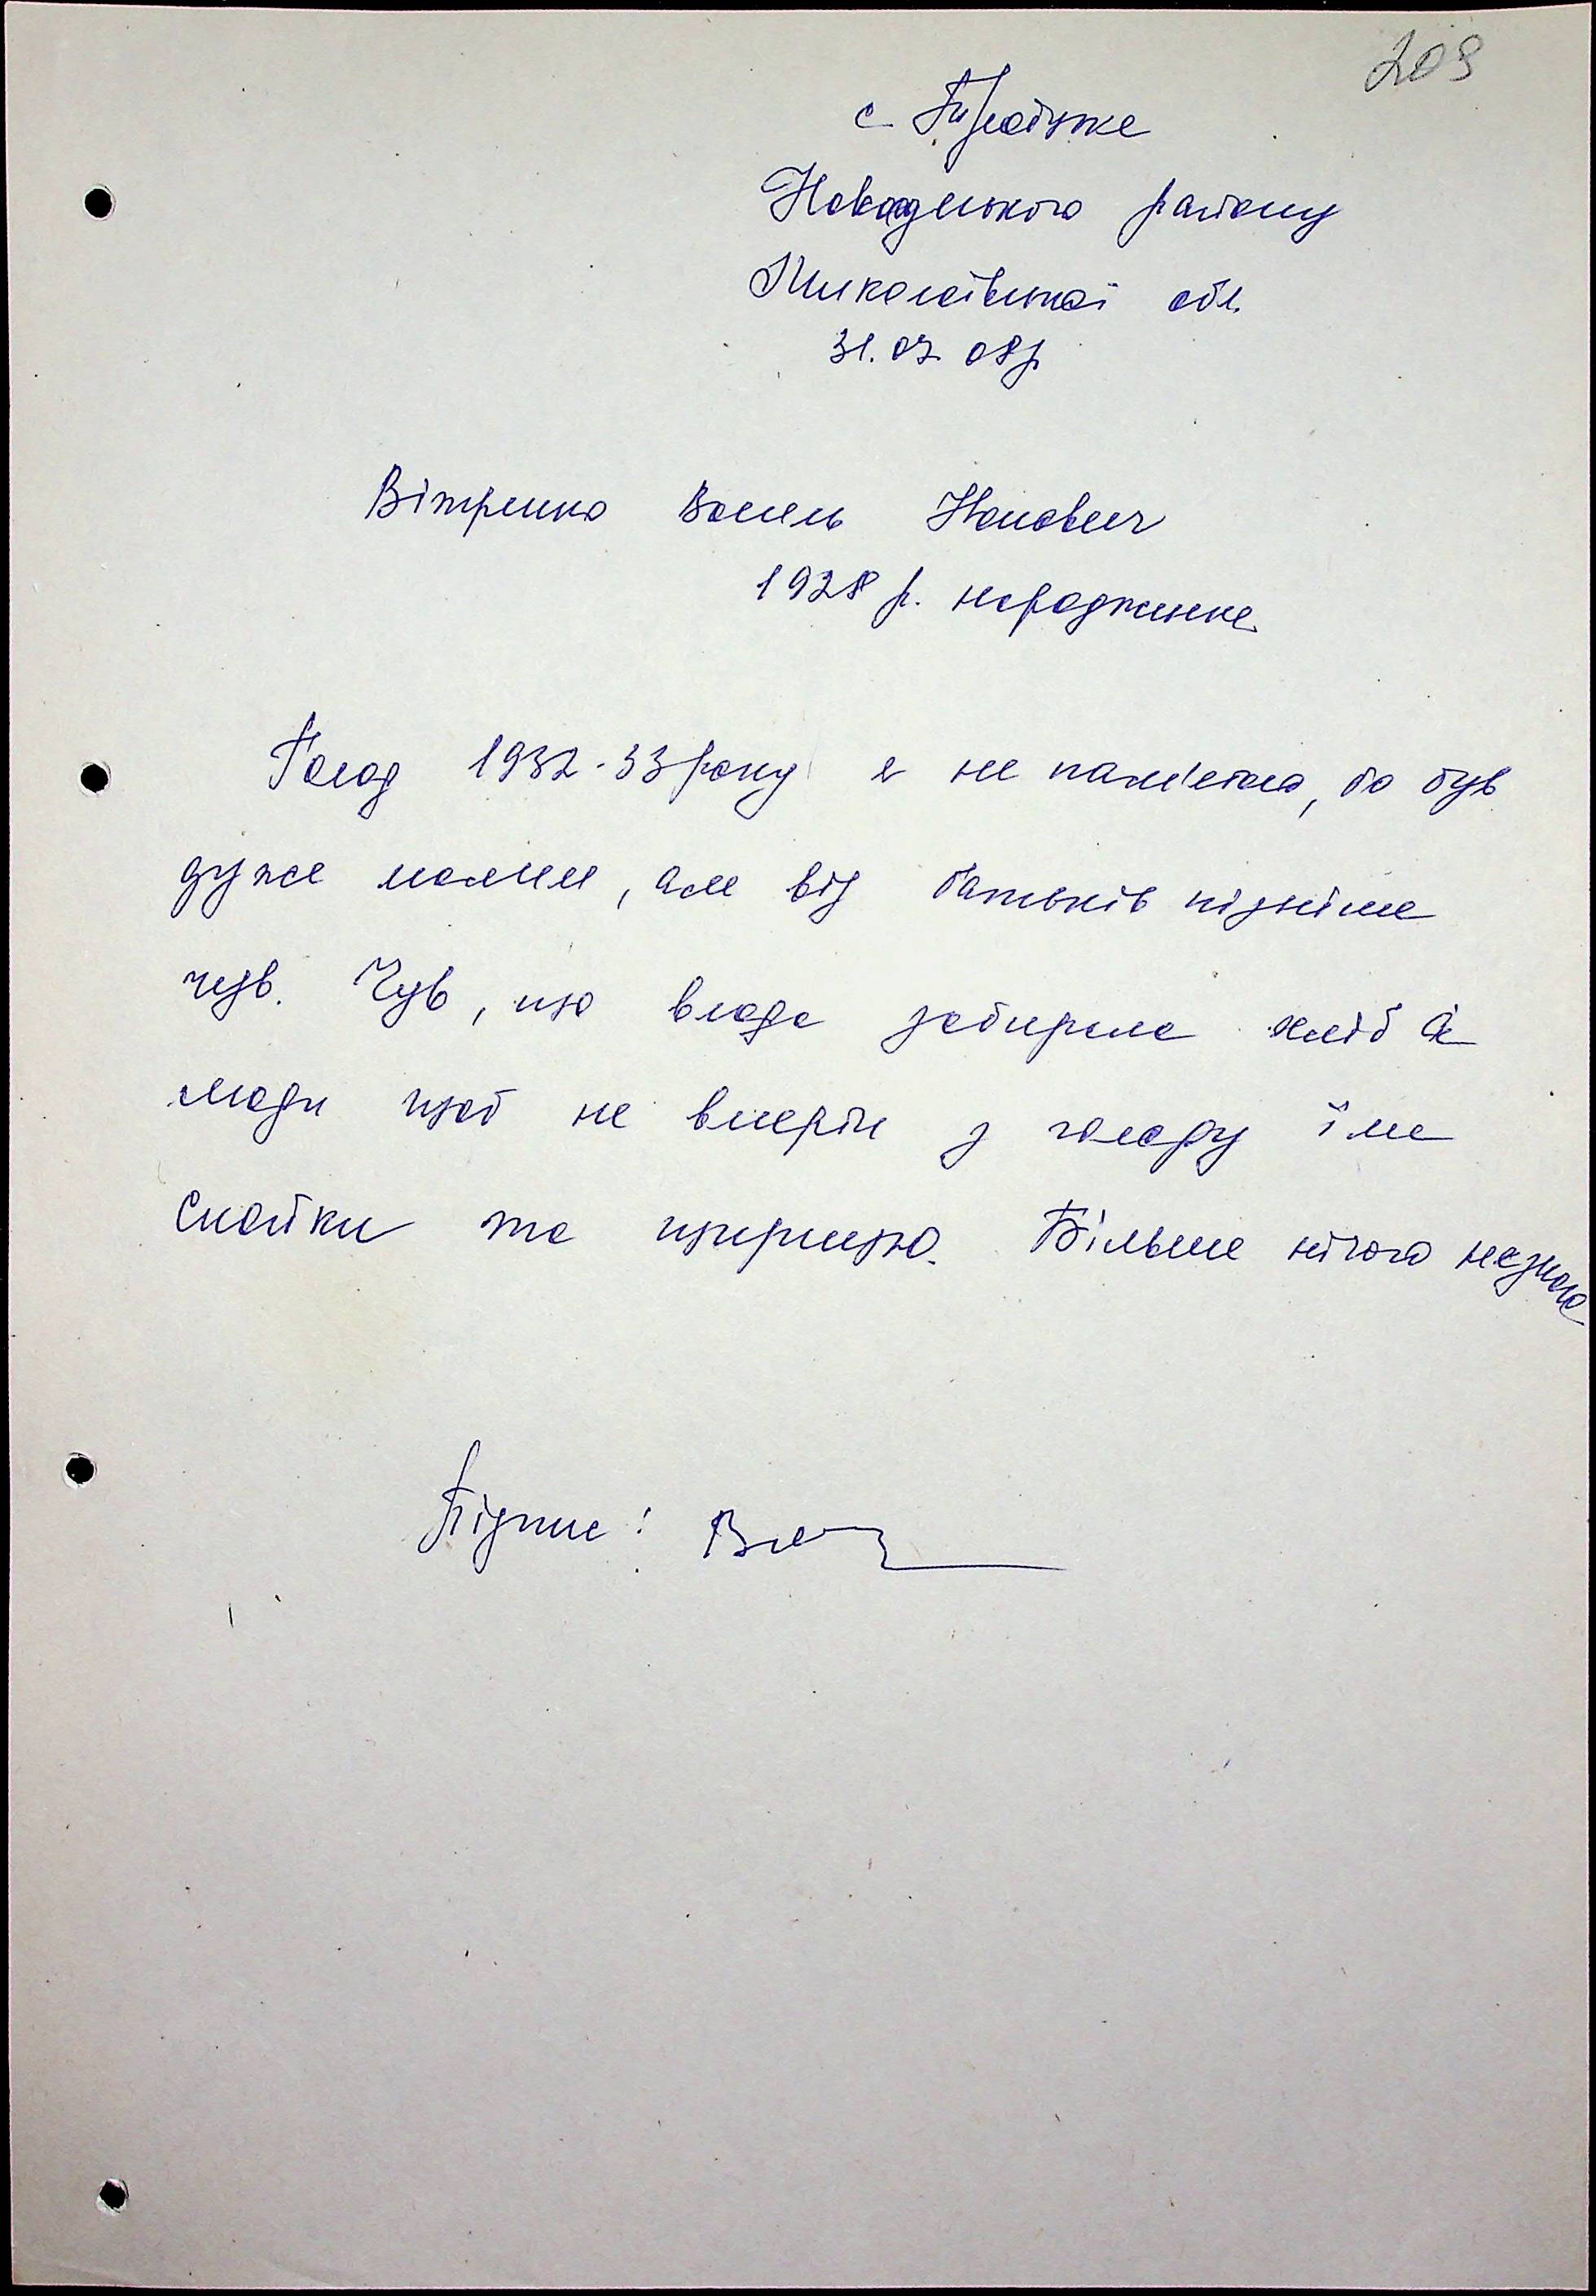 209
с Прибужже
Новоодеського району
Миколаївської обл.
31.07 08р
Вітренко Василь Іванович
1928 р. народження
Голод 1932-33 року я не пам'ятаю, бо був
дуже малим, але від батьків пізніше
чув. Чув, що влада забирала хліб а
люди щоб не вмерти з голоду їли
спайки та щирицю. Більше нічого незнаю
Підпис: